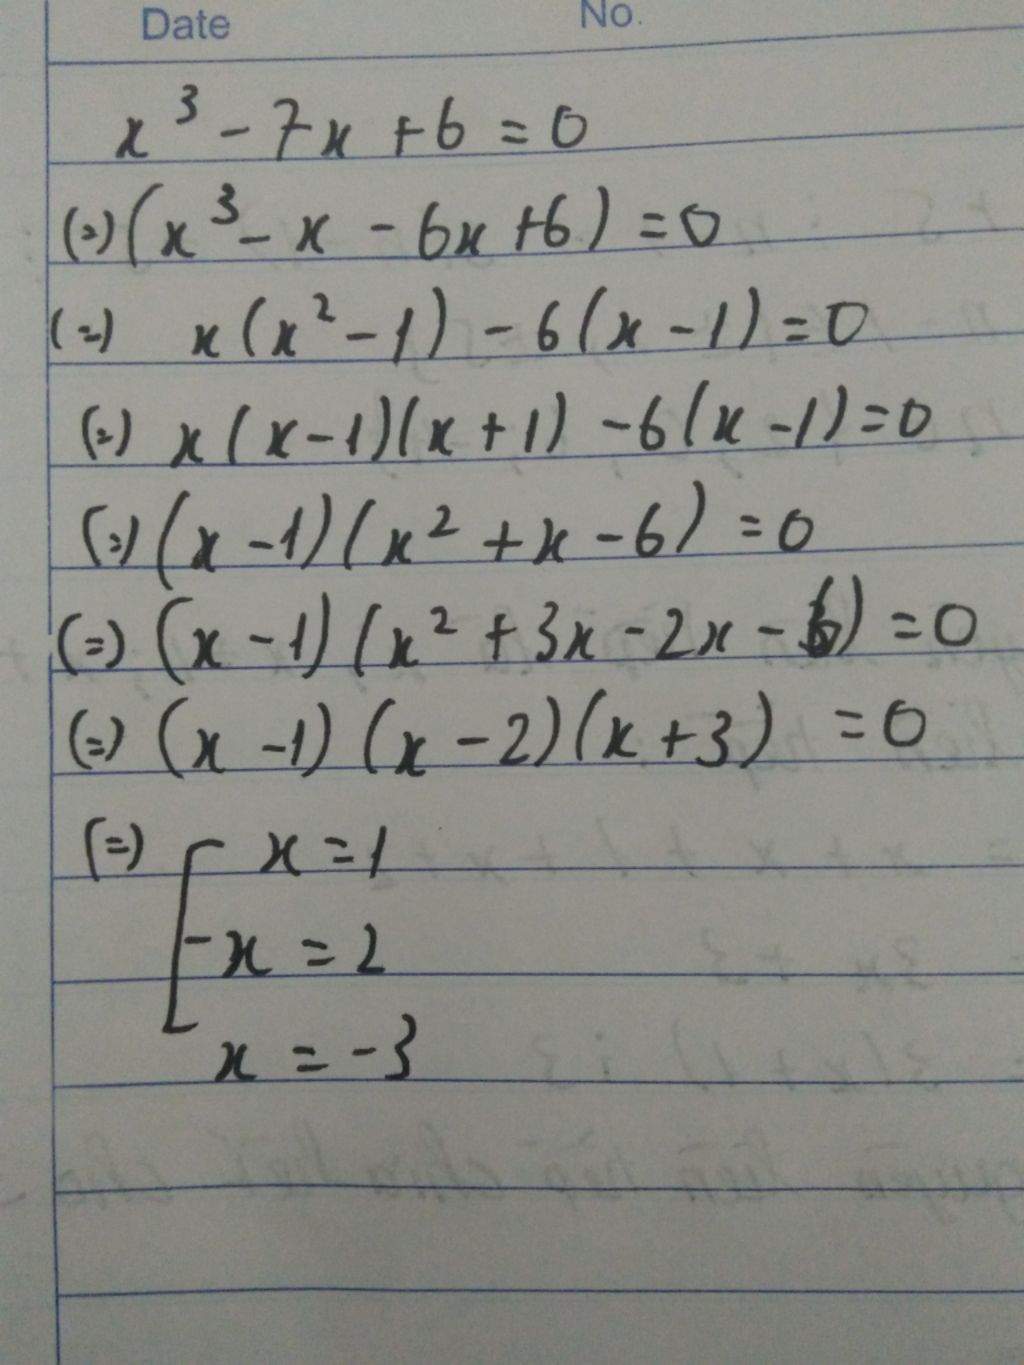 Date No.
x³ - 7x + 6 = 0
(=) (x³ - x - 6x + 6) = 0
(=) x(x² - 1) - 6(x - 1) = 0
(=) x(x - 1)(x + 1) - 6(x - 1) = 0
(=) (x - 1)(x² + x - 6) = 0
(=) (x - 1)(x² + 3x - 2x - 6) = 0
(=) (x - 1)(x - 2)(x + 3) = 0
(=) [ x = 1
- x = 2
x = -3